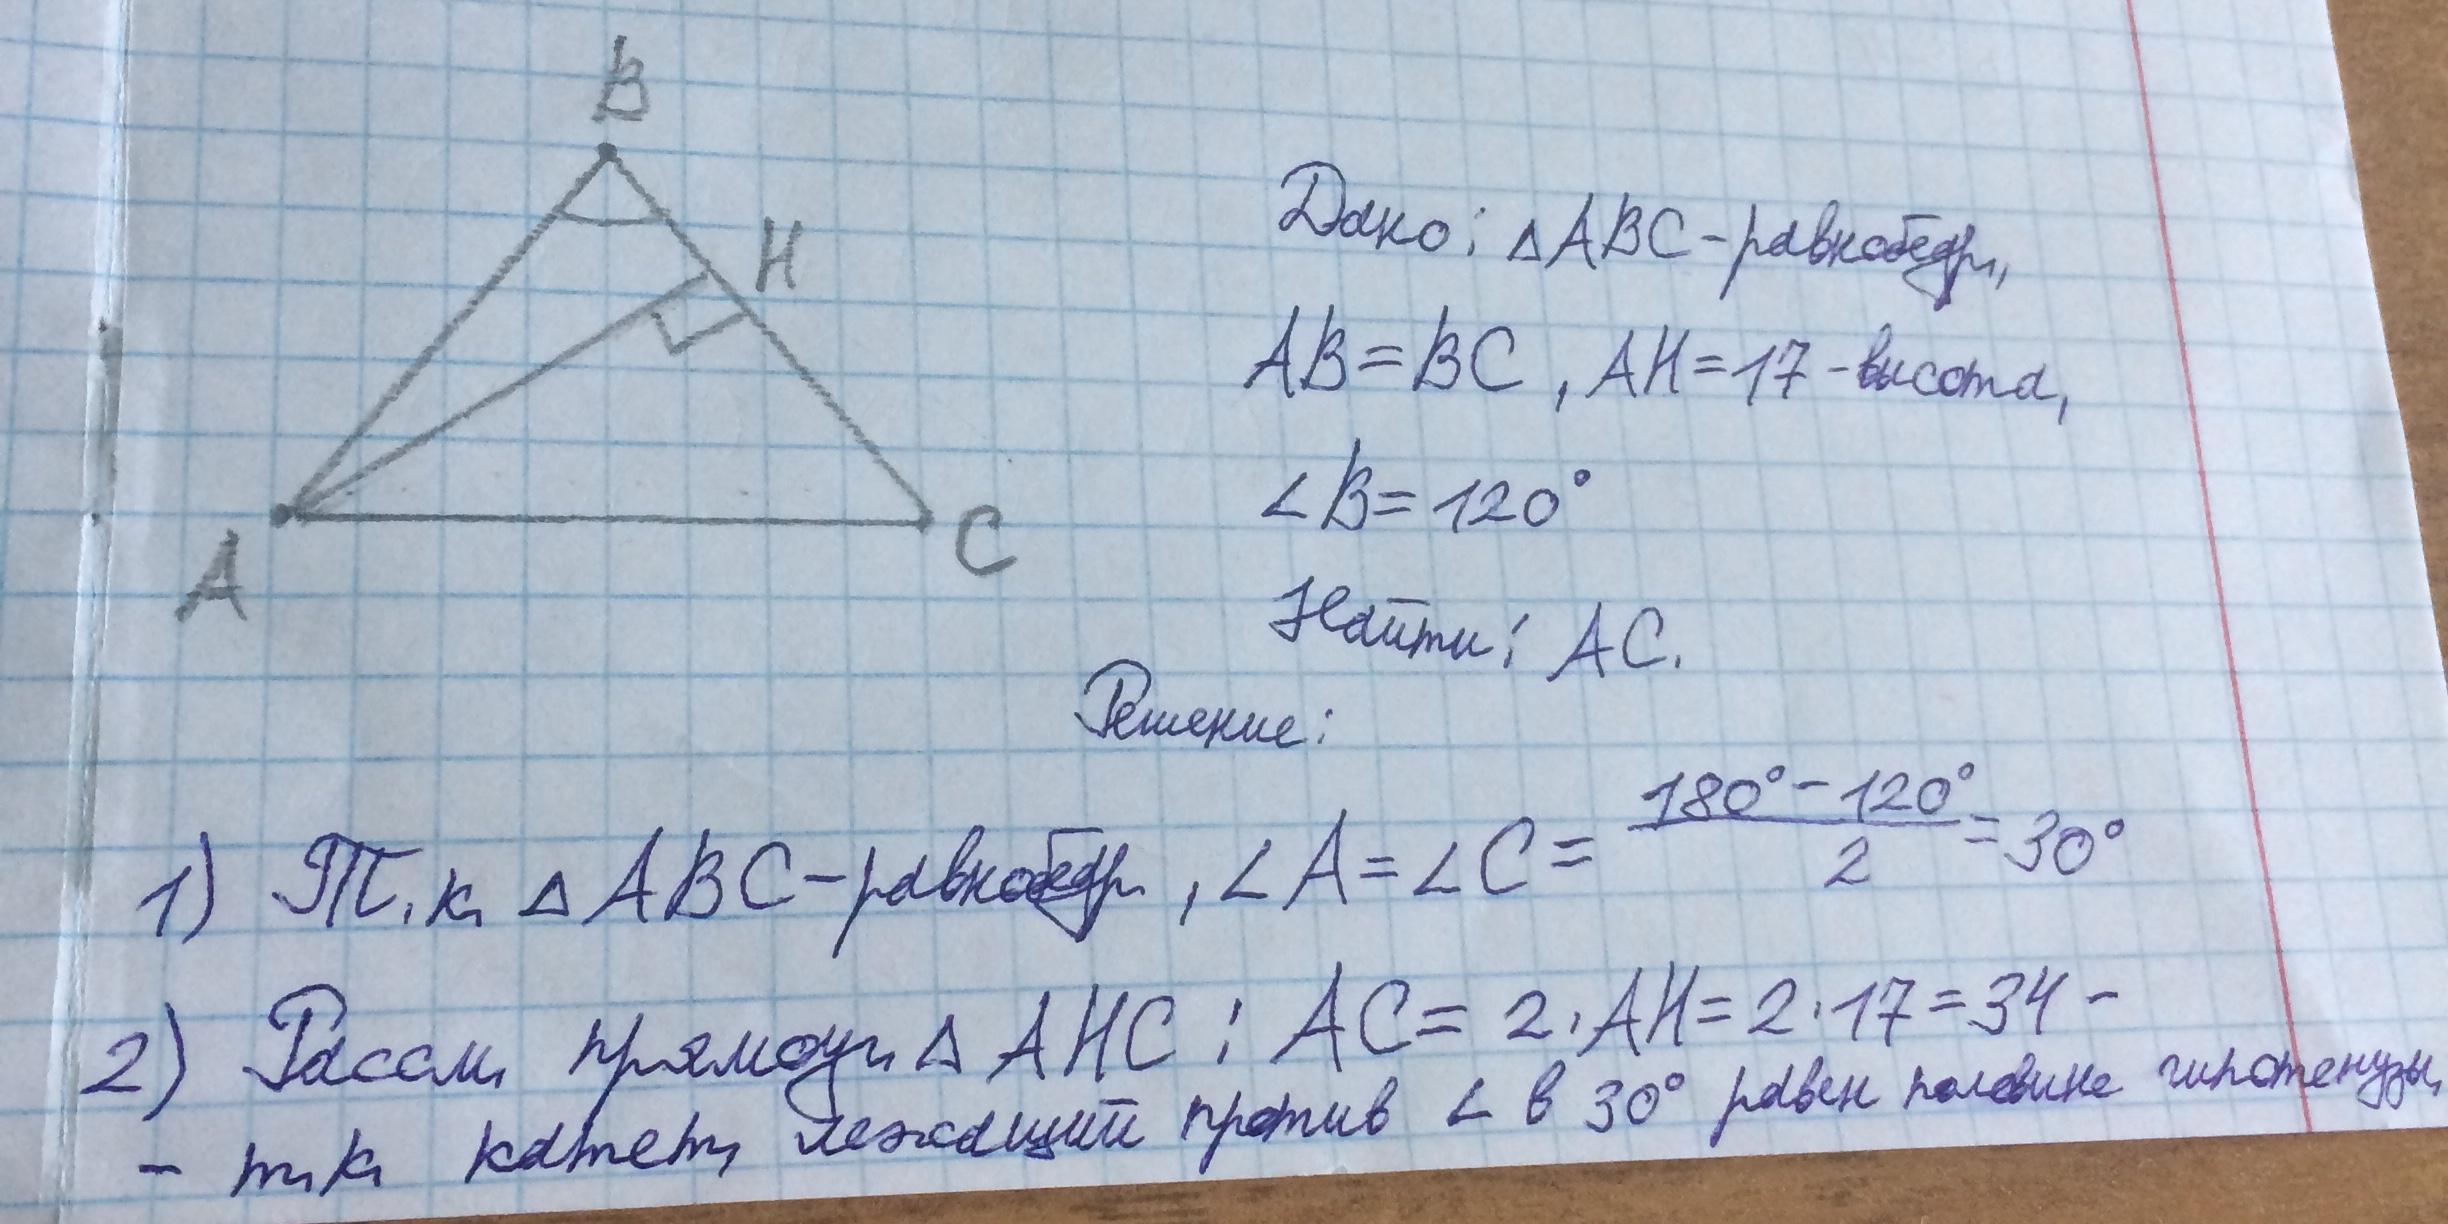 B
H
A
C
Дано: △ABC-равнобедр.,
AB=BC, AH=17-высота,
∠B=120°
Найти: AC.
Решение:
1) Т.к. △ABC-равнобедр., ∠A=∠C= (180°-120°)/2 =30°
2) Рассм. прямоуг. △AHC: AC=2·AH=2·17=34 -
- т.к. катет, лежащий против ∠ в 30° равен половине гипотенузы.